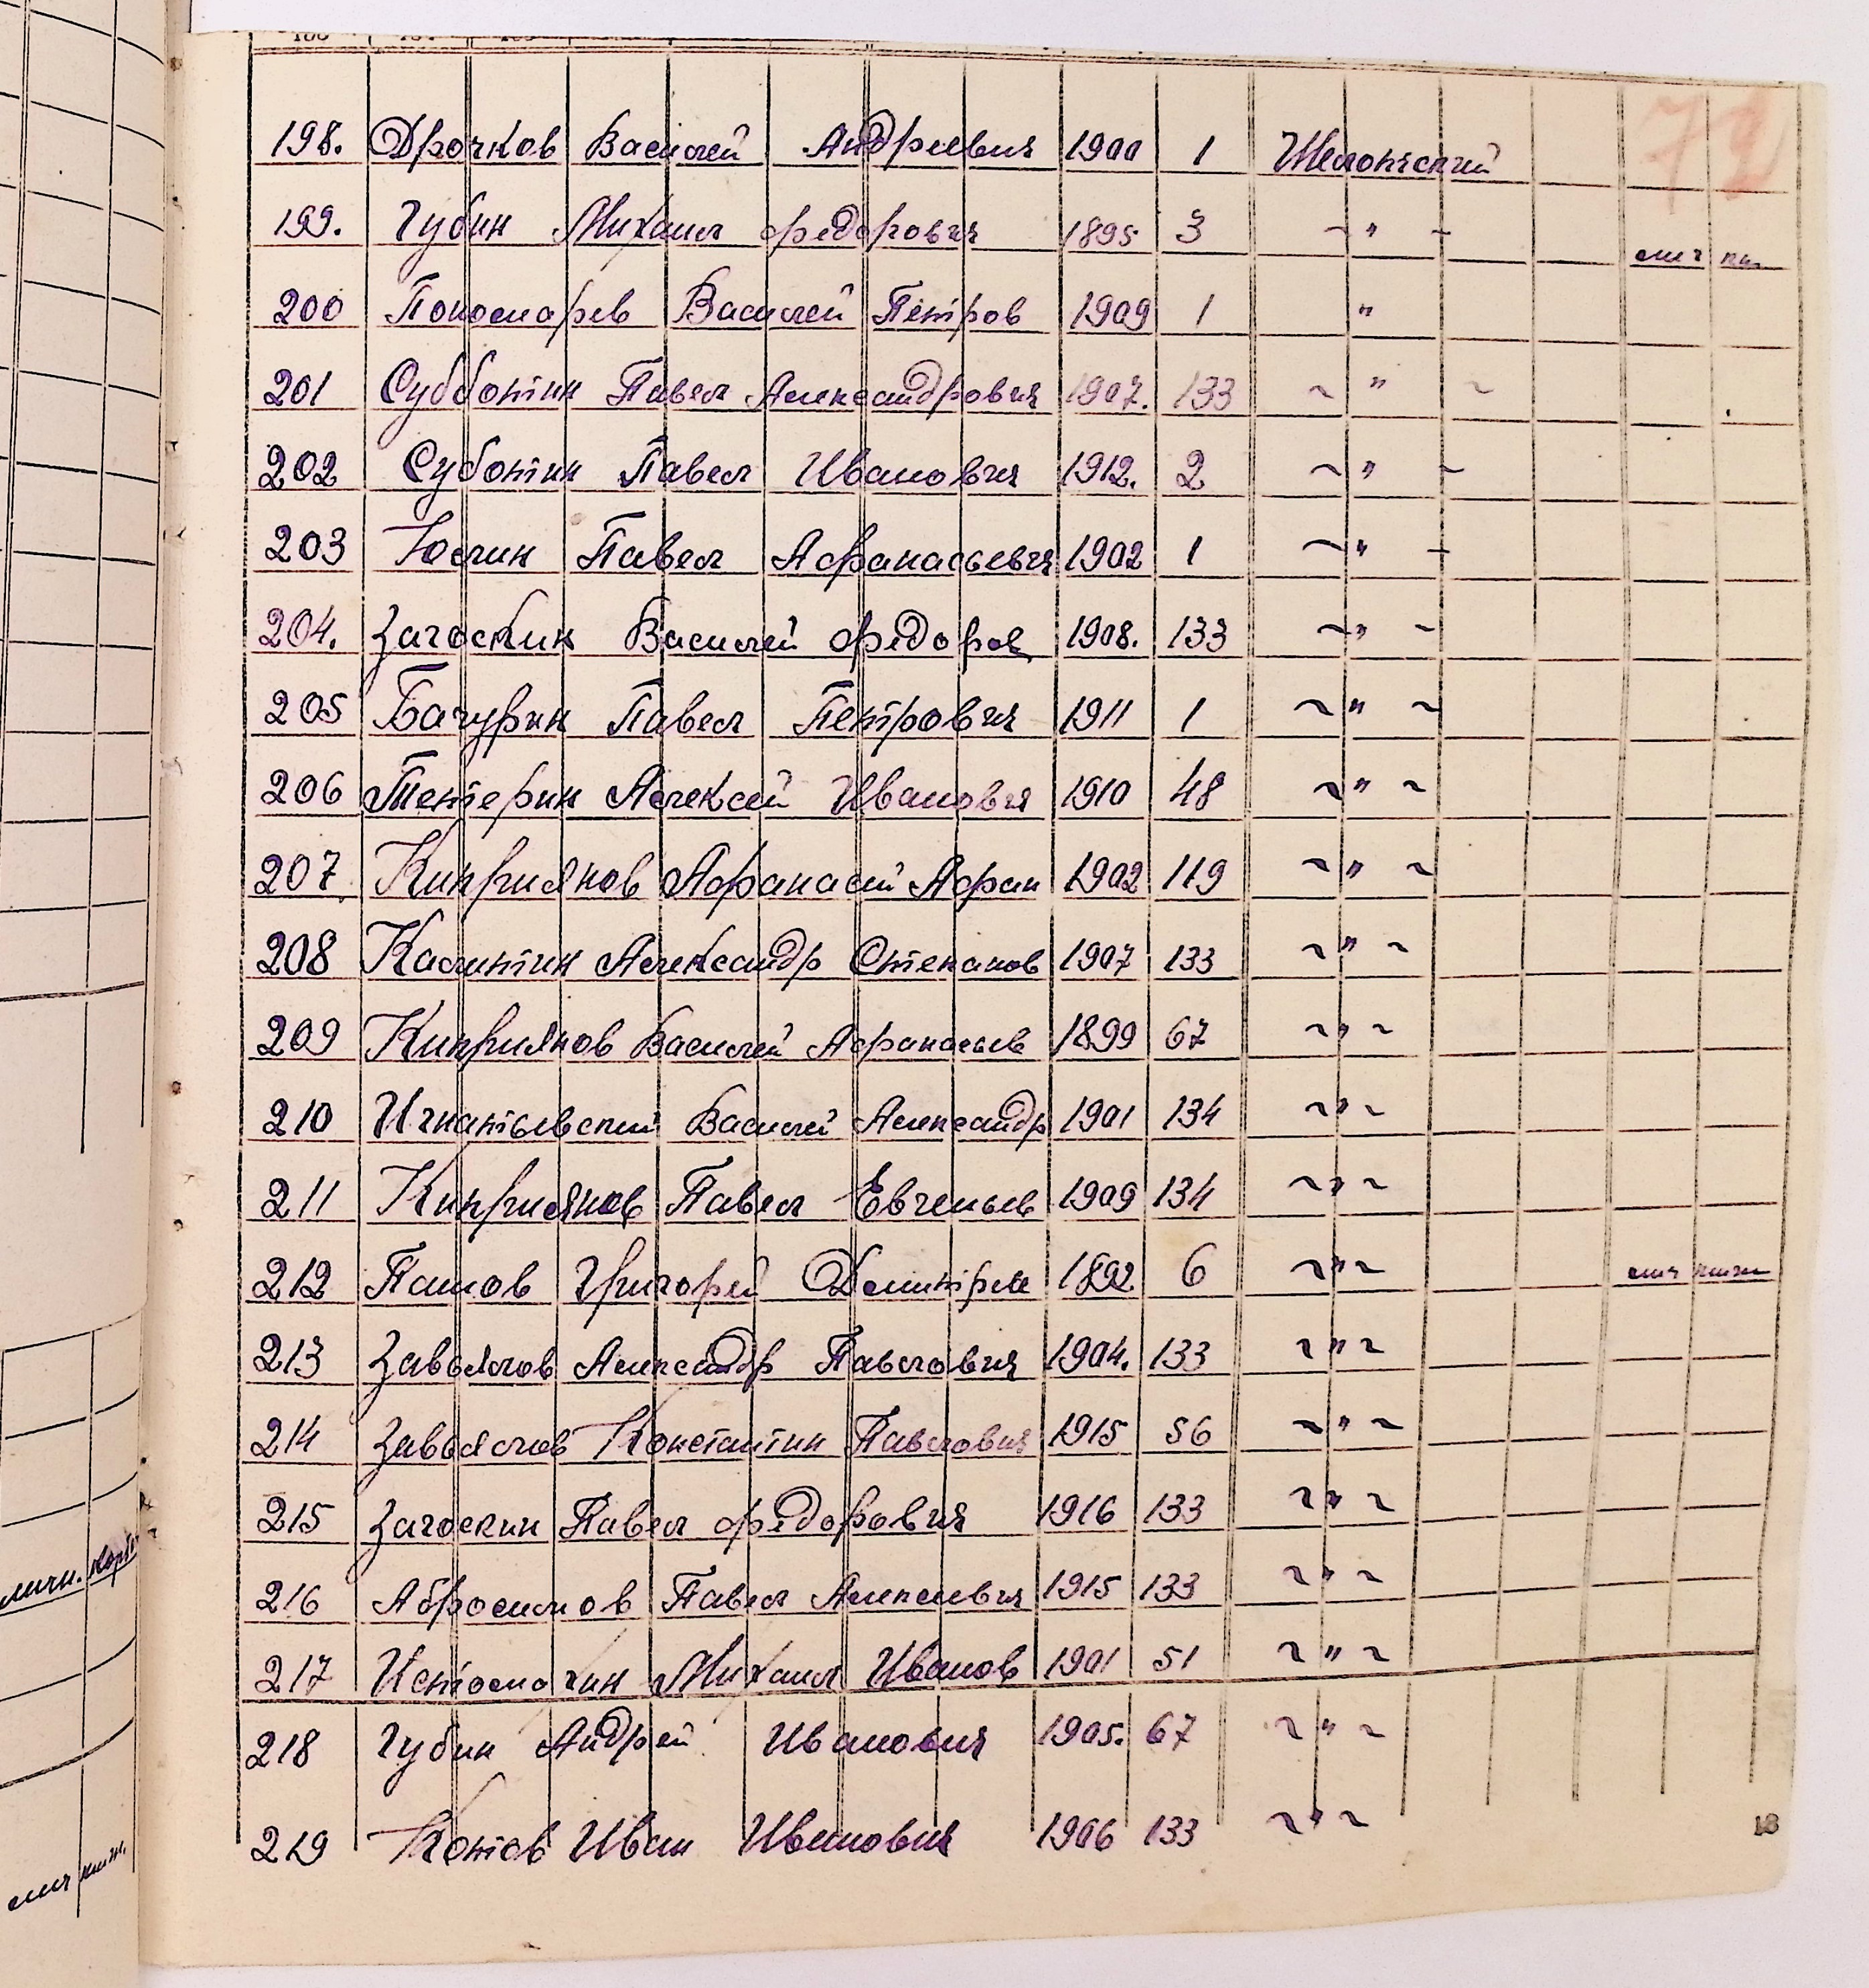 72
198. Дрочков Василей Андреевич 1900 1
199. Губин Михаил Федорович 1895 3 -"-
лич кн.
200 Пономарев Василей Петров 1909 1 "
201 Субботин Павел Александрович 1907. 133 -"-
202 Суботин Павел Иванович 1912. 2 -"-
203 Юслин Павел Афанасьевич 1902 1 -"-
204. Загоскин Василей Федоров 1908. 133 -"-
205 Бачурин Павел Петрович 1911 1 -"-
206 Тетерин Алексей Иванович 1910 48 -"-
207 Киприянов Афанасий Афан 1902 119 -"-
208 Калинтин Александр Степанов 1907 133 -"-
209 Киприянов Василей Афанасьев 1899 67 -"-
210 Игнатьевский Василей Александр 1901 134 -"-
211 Киприянов Павел Евгеньев 1909 134 -"-
212 Григорей Дмитрие 1892 6 -"- лич книж
213 Завьялов Александр Павлович 1904. 133 -"-
214 Завьялов Константин Павлович 1915 56 -"-
215 Загоскин Павел Федорович 1916 133 -"-
216 Абросимов Павел Алексеевич 1915 133 -"-
217 Истомачин Михаил Иванов 1901 51 -"-
218 Губин Андрей Иванович 1905. 67 -"-
219 Котов Иван Иванович 1906 133 -"-
лич книж.